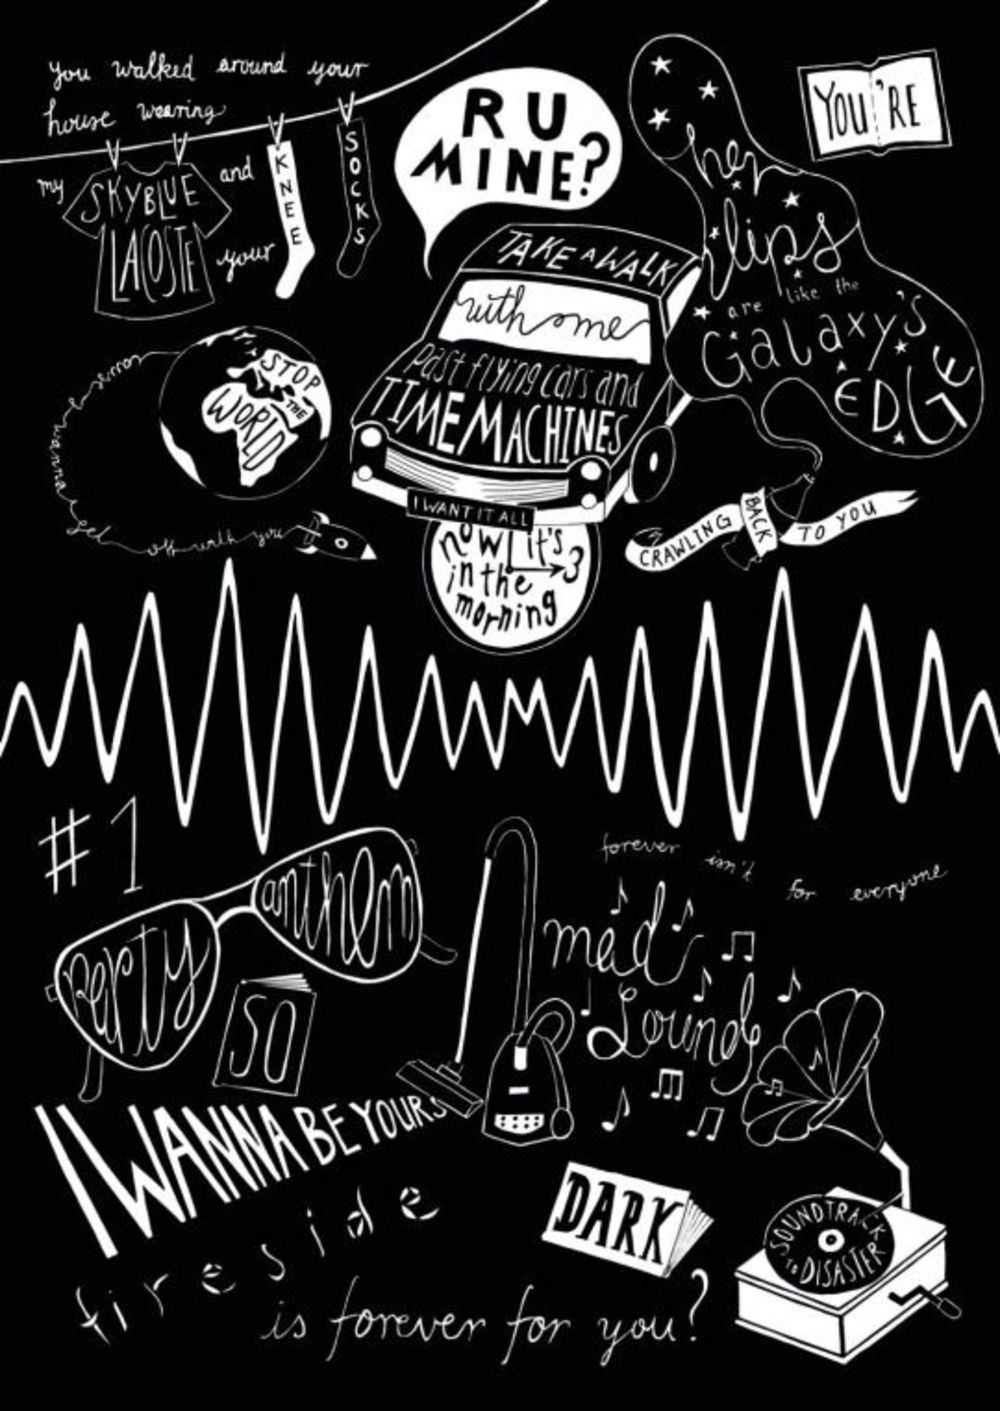 you walked around your
house wearing
my
SKYBLUE
LACOSTE
and
your
KNEE
SOCKS
R U
MINE?
her
lips
are like the
GalaxY'S
EDGE
YOU'RE
TAKE A WALK
with me
Past flying cars and
TIME MACHINES
I WANT IT ALL
now it's
in the 3
morning
STOP
THE
WORLD
cause I wanna get off with you
CRAWLING
BACK
TO YOU
#1
party
anthem
SO
I WANNA BE YOURS
forever isn't for everyone
mad
sounds
DARK
SOUNDTRACK
TO DISASTER
fireside
is forever for you?